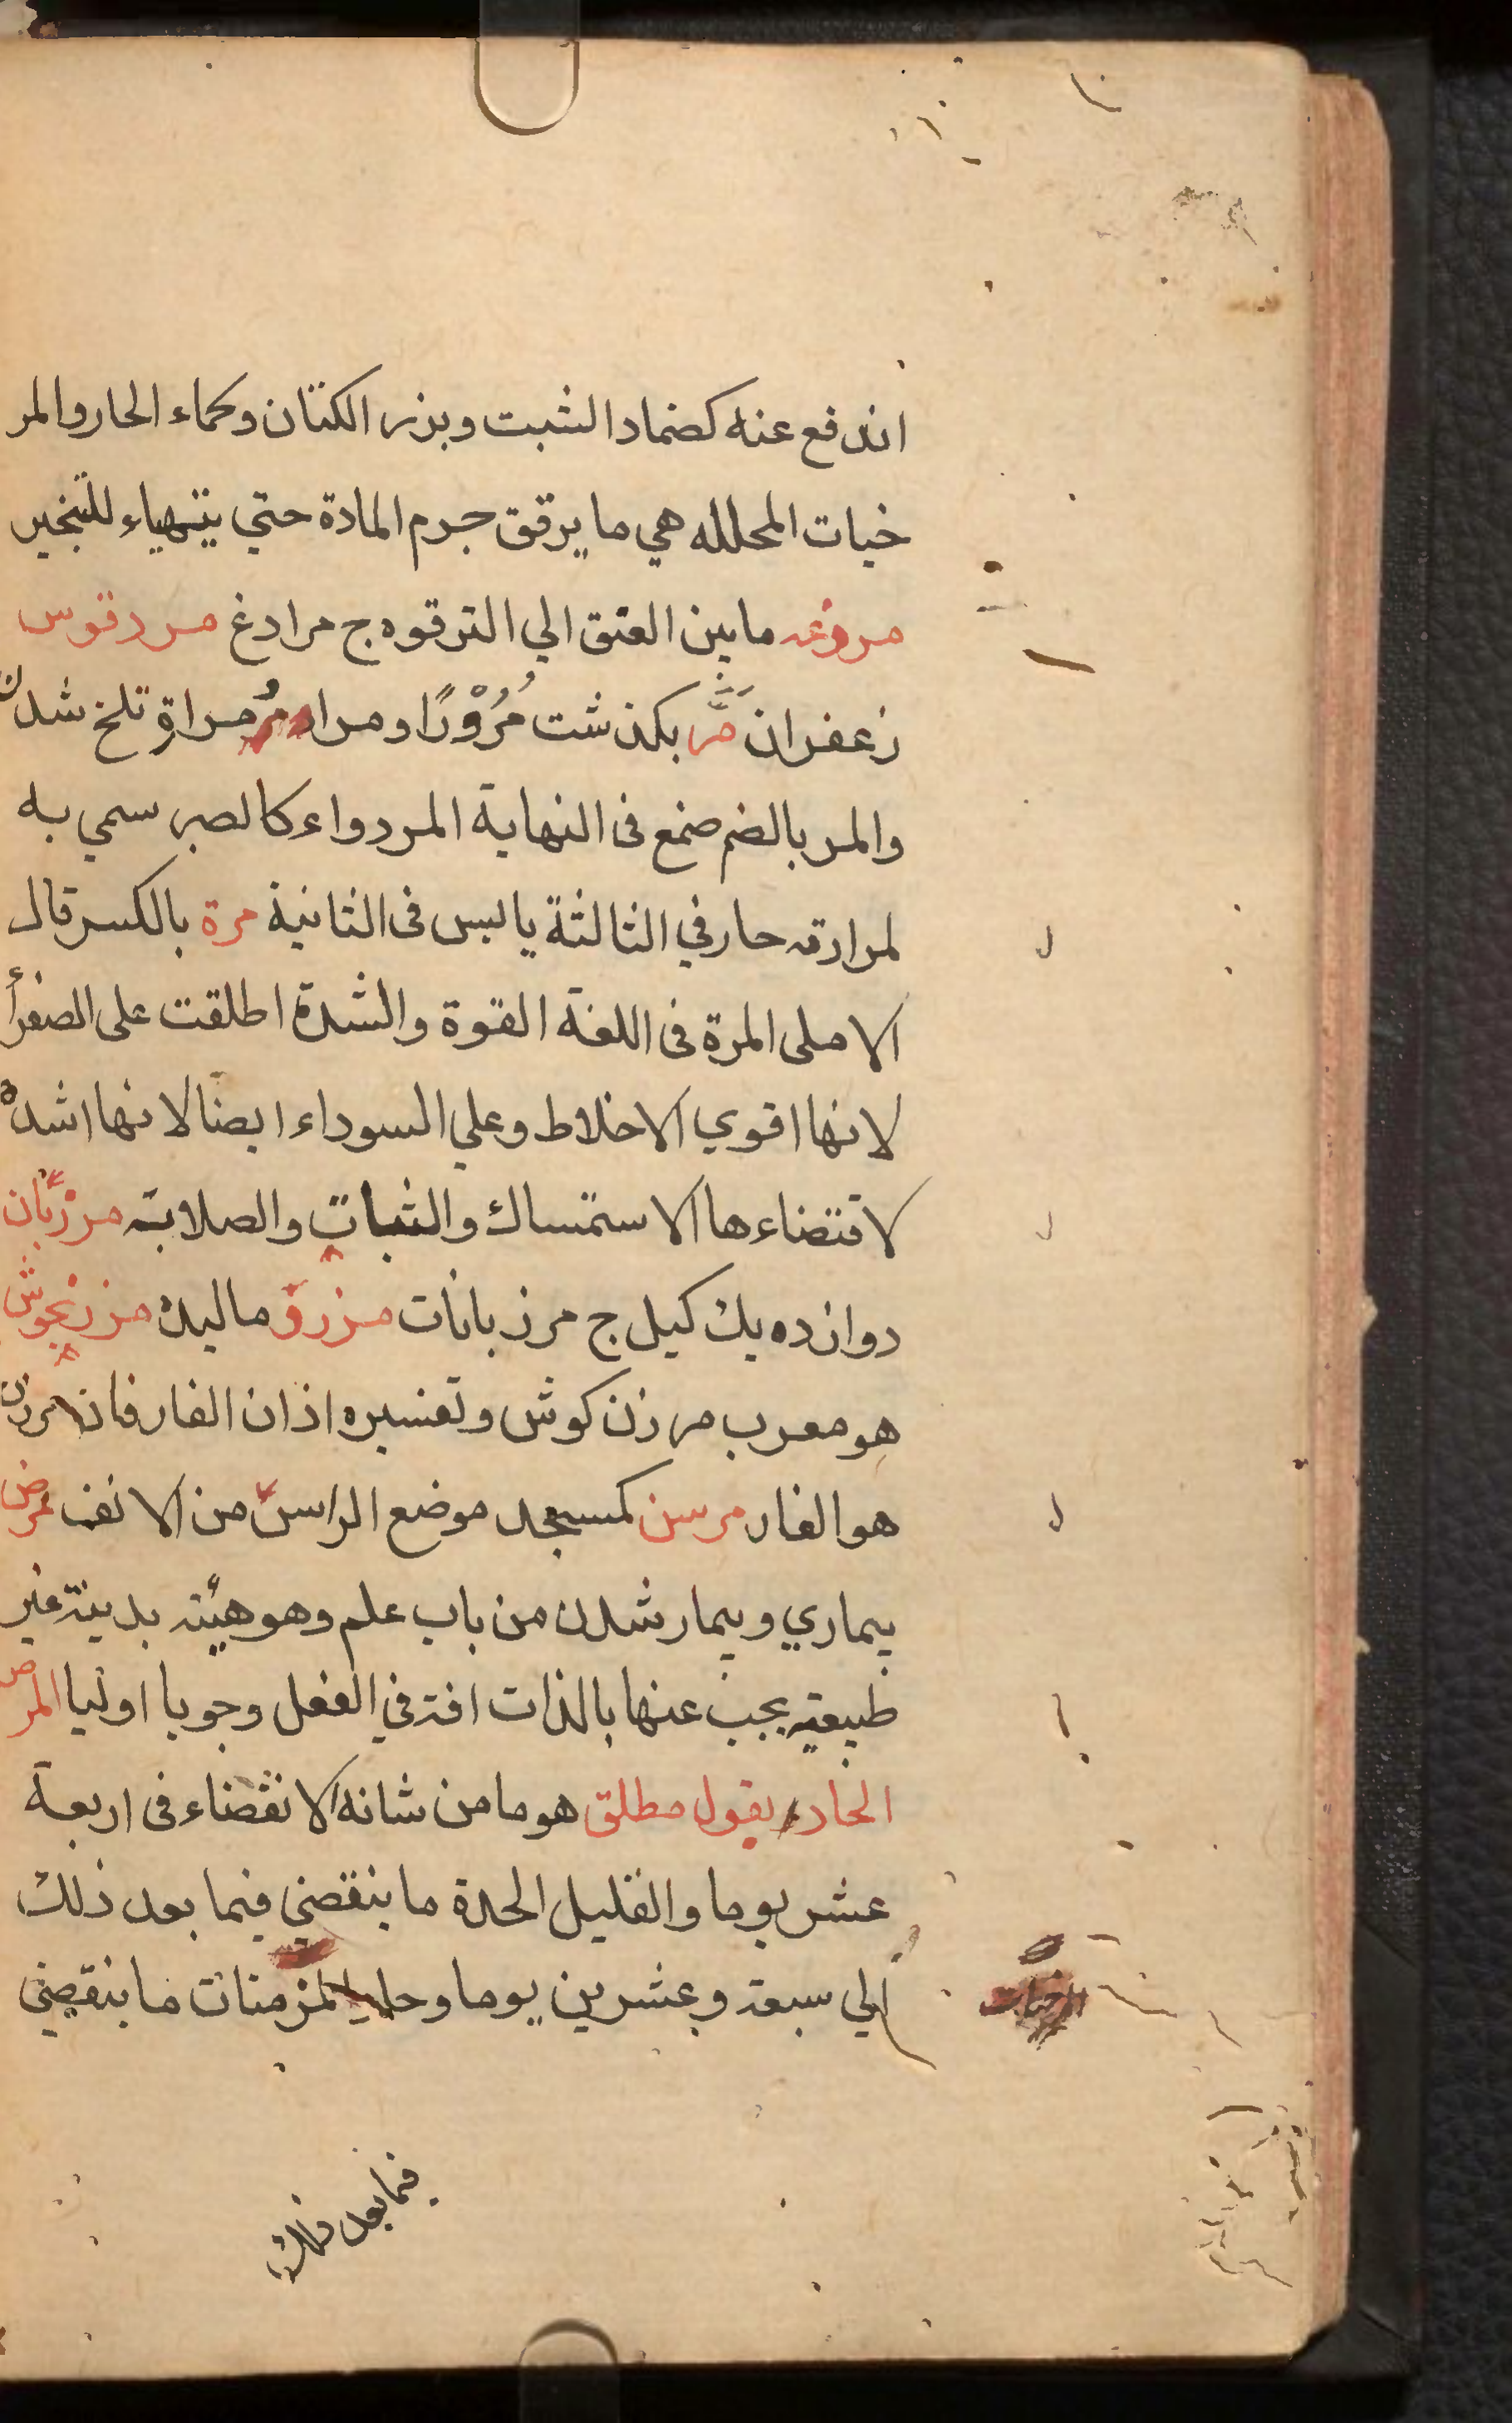 اندفع عنه كضماد الشبت وبزر الكتان وكماء الحار والمر
خيات المحلله هي ما يرقق جرم المادة حتي يتهياء للتبخير
مردغه مابين العنق الي الترقوه ج مرادغ مردقوس
زعفران مَرّ بكذشت مُرُوْرًا ومرا مُر مراة تلخ شدن
والمر بالضم صمغ فى النهاية المر دواء كالصبر سمي به
لمرارته حار في الثالثة يابس فى الثانية مرة بالكسر قال
الاملى المرة فى اللغة القوة والشدة اطلقت على الصفرأ
لانها اقوي الاخلاط وعلي السوداء ايضا لانها اشده
لاقتضاءها الاستمساك والثبات والصلابة مرزبان
دوازده يك كيل ج مرزبانات مزروَ ماليده مرزنجوش
هو معرب مرزن كوش وتفسيره اذان الفار فان مرزن
هو الفار مرسن كمسجد موضع الراس من الانف مرض
بيماري وبيمار شدن من باب علم وهو هيئة بدينة غير
طبيعية يجب عنها بالذات افة في الفعل وجوبا اوليا المرض
الحاد بقول مطلق هو ما من شانه الانقضاء فى اربعة
عشر يوما والقليل الحدة ما ينقضي فيما بعد ذلك
الي سبعة وعشرين يوما وحاد المزمنات ما ينقضي
فيما بعد ذلك